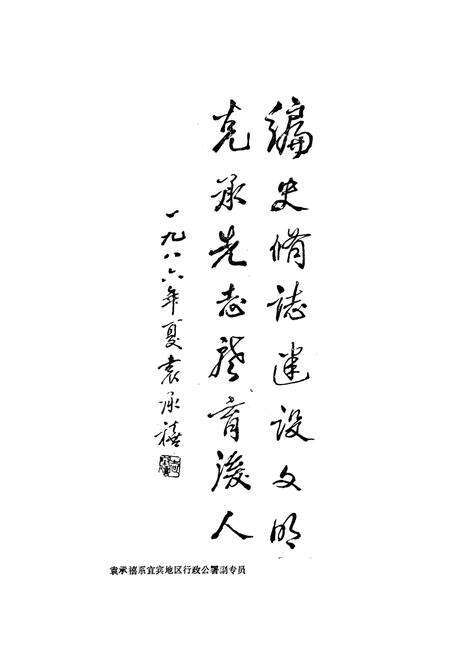 編史脩誌建設文明
克承先志育後人
一九八六年夏袁承禧
袁承禧系宜宾地区行政公署副专员